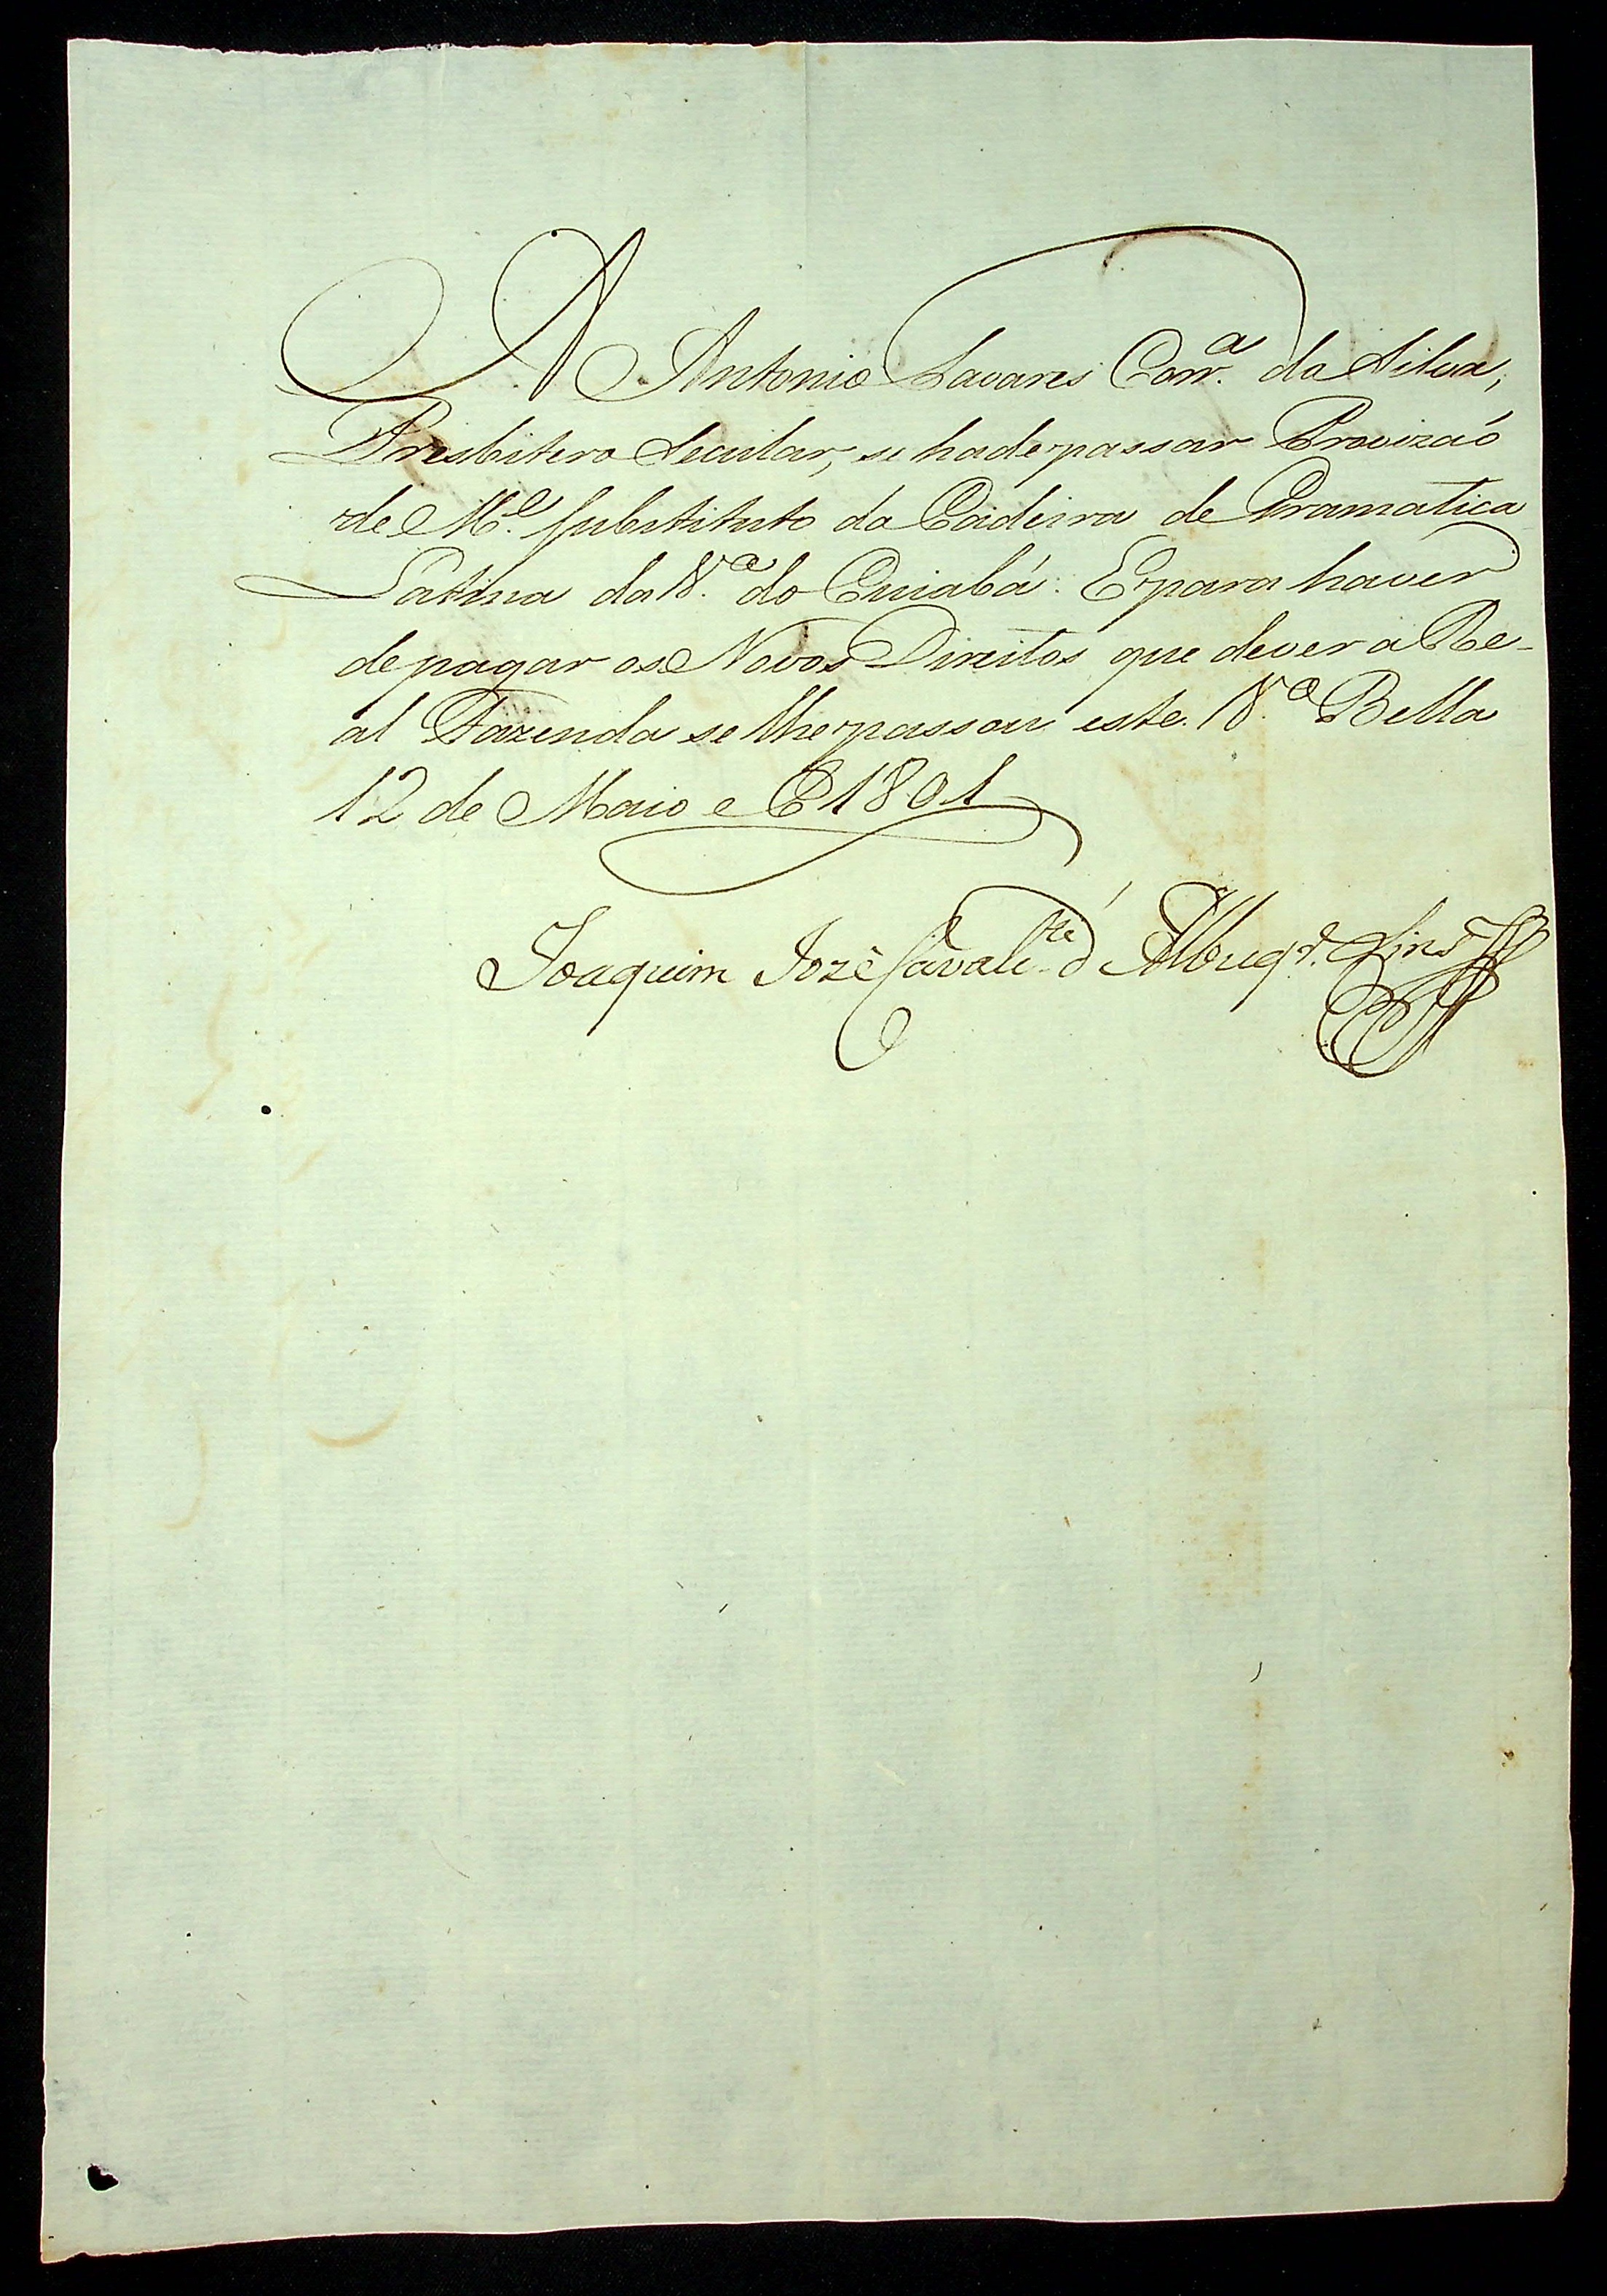 A Antonio Tavares Corr.ª da Silva,
Presbitero Secular, se hade passar Provizaõ
de M.e Substituto da Cadeira de Gramatica
Latina da V.ª do Cuiabá: E para haver
de pagar os Novos Direitos que dever a Re-
al Fazenda se lhe passou este. V.ª Bella
12 de Maio de 1801
Joaquim Jozé Cavalc.te d'Albuq.e Lins